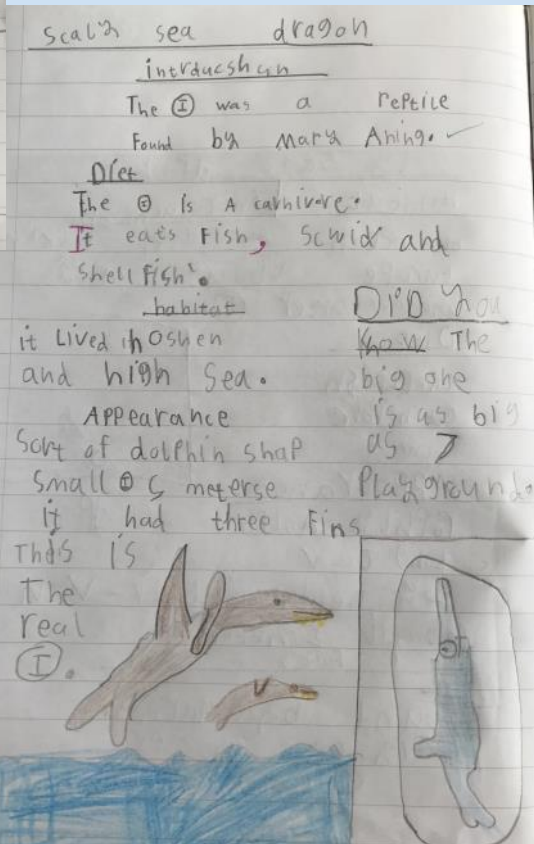 Scaly sea dragon
intrducshun
The Ⓘ was a reptile
Found by Mary Aning.
Diet
The Ⓘ is A carnivore.
It eats Fish, Scwid and
Shell Fish.
habitat
it Lived in oshen
and high Sea.
Appearance
Sort of dolphin shap
Small Ⓘ 5 meterse
it had three Fins
DiD you
Know The
big one
is as big
as 7
Playgrounds
This is
The
real
Ⓘ.